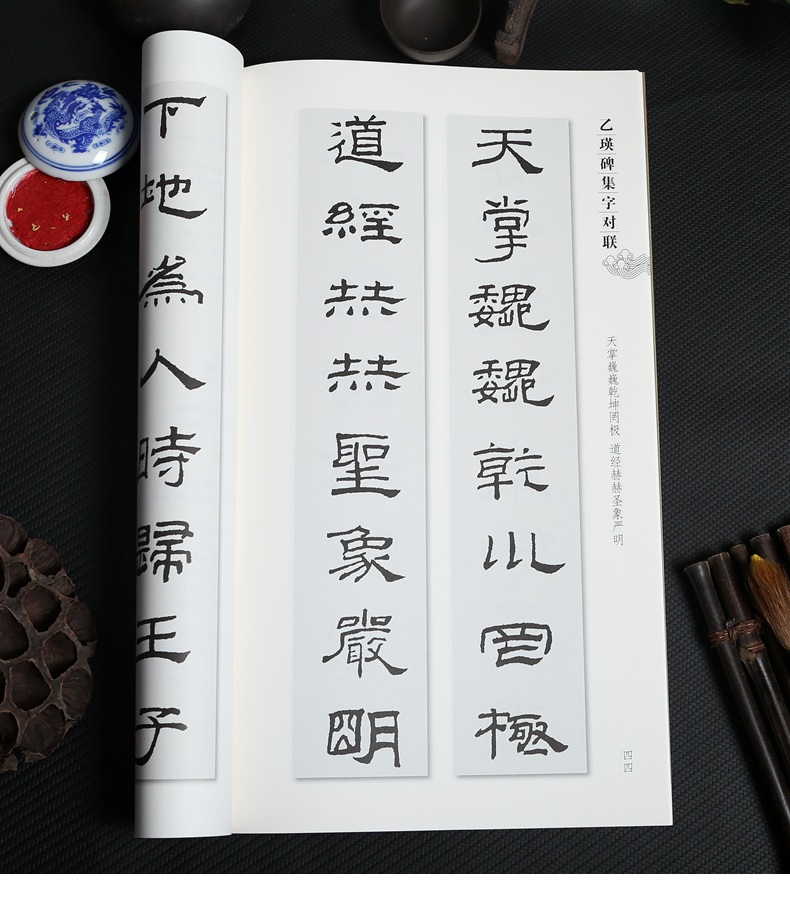 乙瑛碑集字对联
天掌巍巍乾坤罔极 道经赫赫圣象严明
四四
天掌魏魏乾川罔極
道經赫赫聖象嚴明
下地為人時歸王子